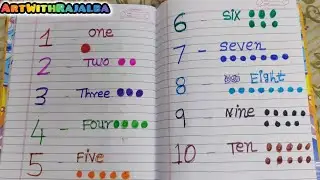 ArtWithRajalba
1 One
2 - Two
3 Three
4 - Four
5 - Five
6 Six
7 - Seven
8 Eight
9 Nine
10 - Ten